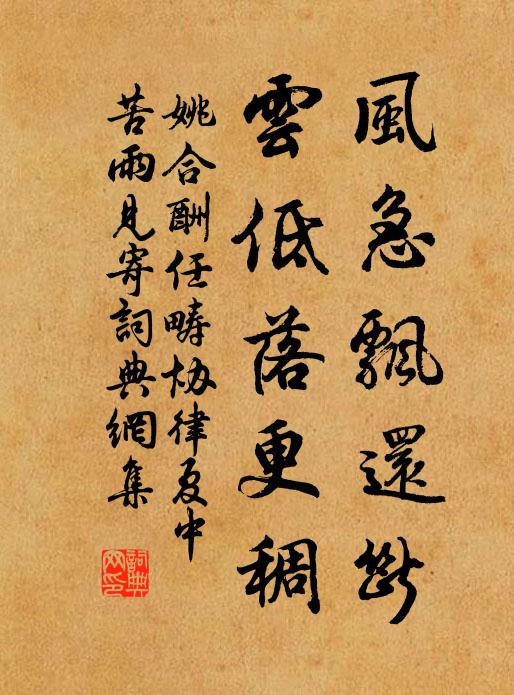 風急飄還斷
雲低落更稠
姚合酬任疇協律夏中
苦雨見寄詞典網集
詞典網印